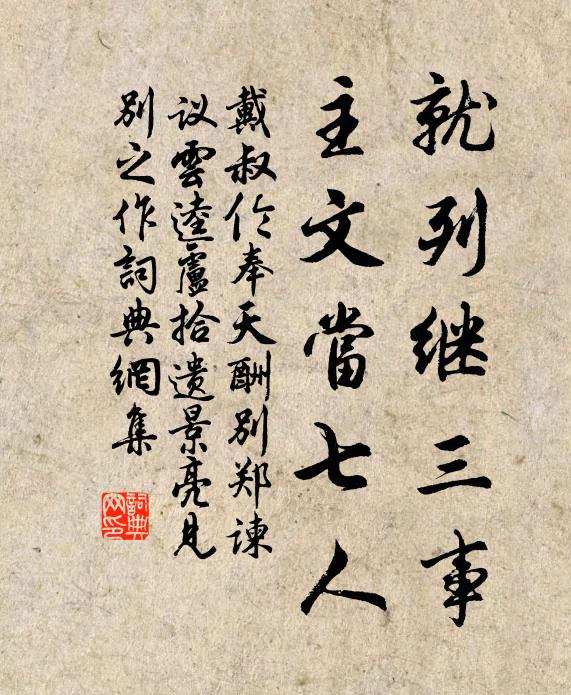 就列继三事
主文當七人
戴叔伦奉天酬别郑谏
议雲逵盧拾遗景亮见
别之作詞典網集
詞典网印